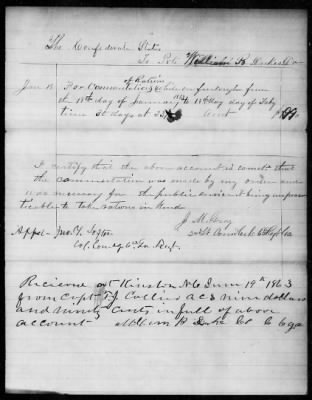 The Confederate States
To Private William R. Dr
Jan 18 For Commutation of Rations while on furlough from
the 18th day of January to 18th day of Feby
time 30 days at 33 cent
I certify that the above account is correct that
the commutation was made by my order and
was necessary for the public service it being imprac
ticable to take rations in kind
J. M.
2nd Lt Comdg Co. 6th
Appd - Jno. T. Lofton
Col. Comdg 6th Ga Regt.
Received at Kinston N.C. June 19th 1863
from Capt T J Collier A C S nine dollars
and ninety cents in full of above
account William R Co C 6 ga